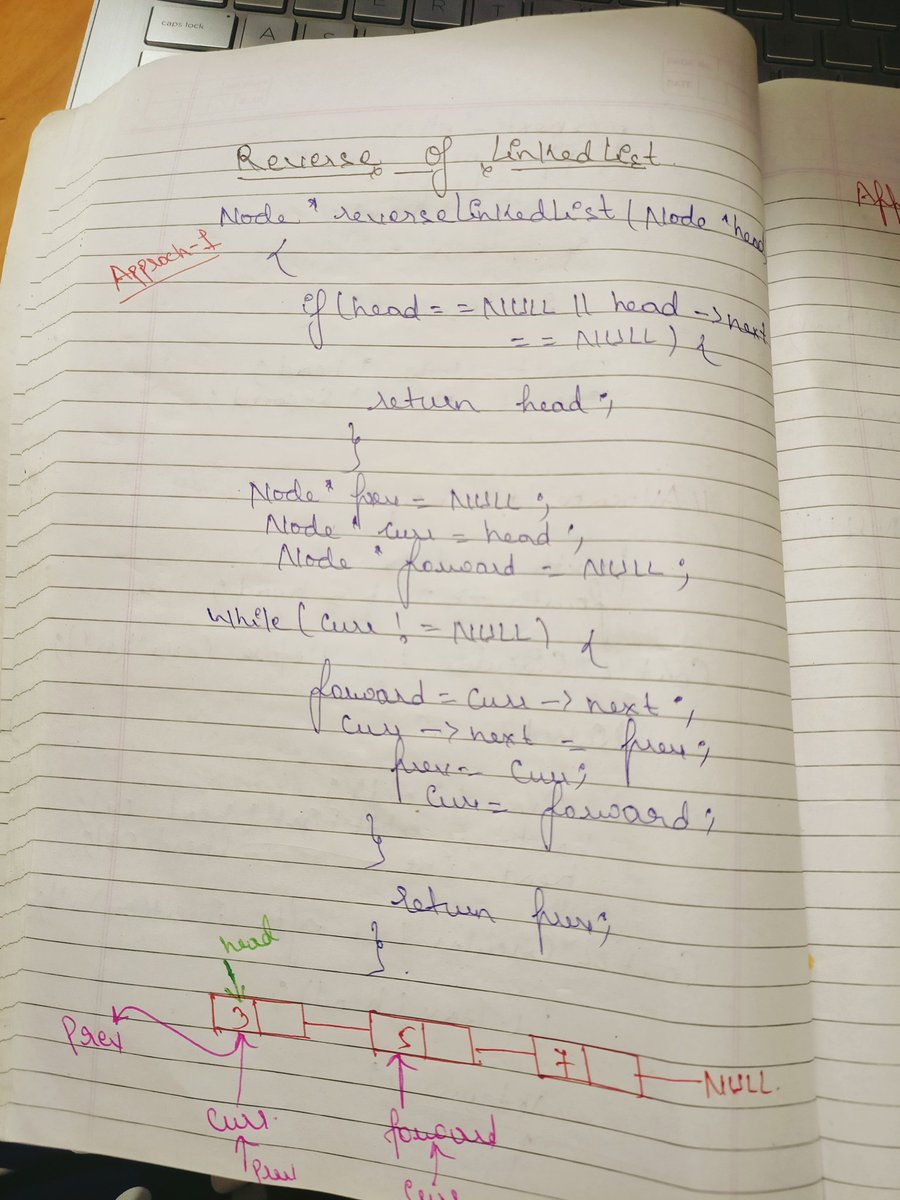 caps lock
A S
Reverse of LinkedList
Node * reverseLinkedList (Node *head
Approch-1
{
if (head == NULL || head ->next
== NULL) {
return head;
}
Node * prev = NULL;
Node * curr = head;
Node * forward = NULL;
while (curr != NULL) {
forward = curr -> next;
curr -> next = prev;
prev = curr;
curr = forward;
}
return prev;
}
head
3 5 7 NULL
Prev
curr
forward
prev
curr